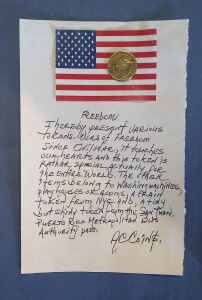 FREEDOM
I hereby present various
tokens. Word of Freedom
since Civil War, it touches
our hearts and this token is
rather special actually for
the entire world. The other
items belong to washing machines,
play houses or acorns, a train
token from NYC and, a tiny
but shiny token from the San Juan,
Puerto Rico Metropolitan Bus
Authority pass.